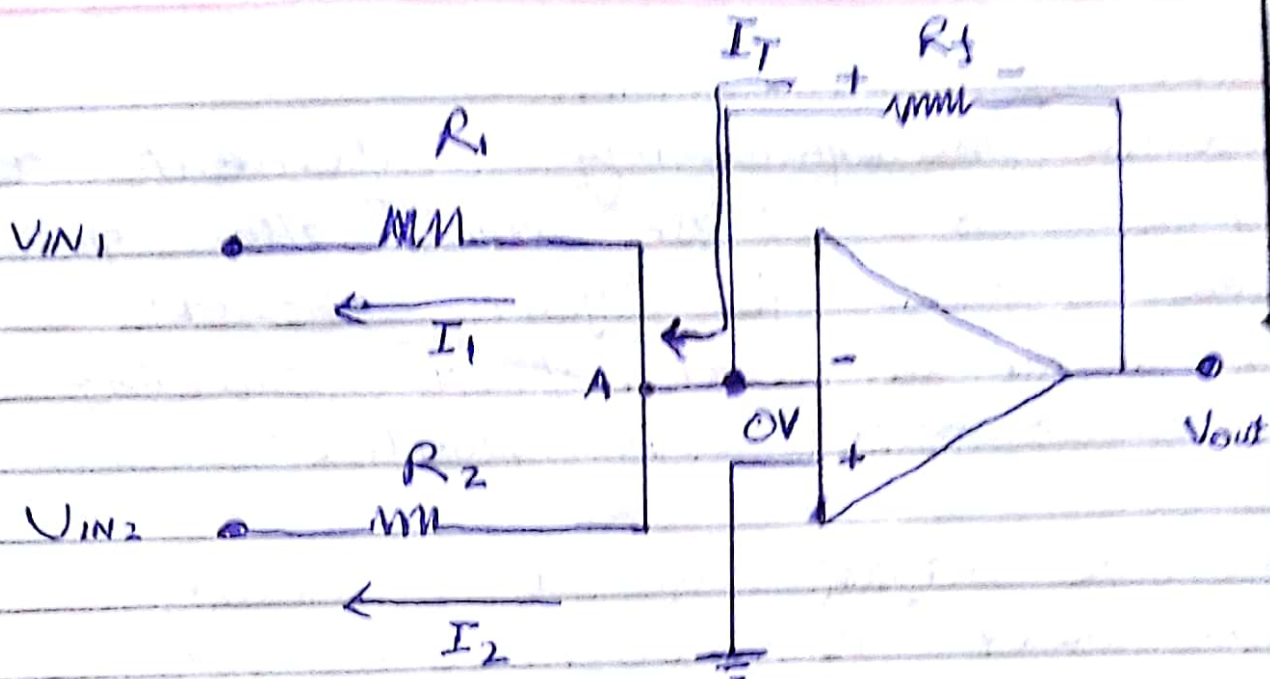 IT
+ Rf -
R1
VIN1
I1
A
-
0V
Vout
R2
+
VIN2
I2